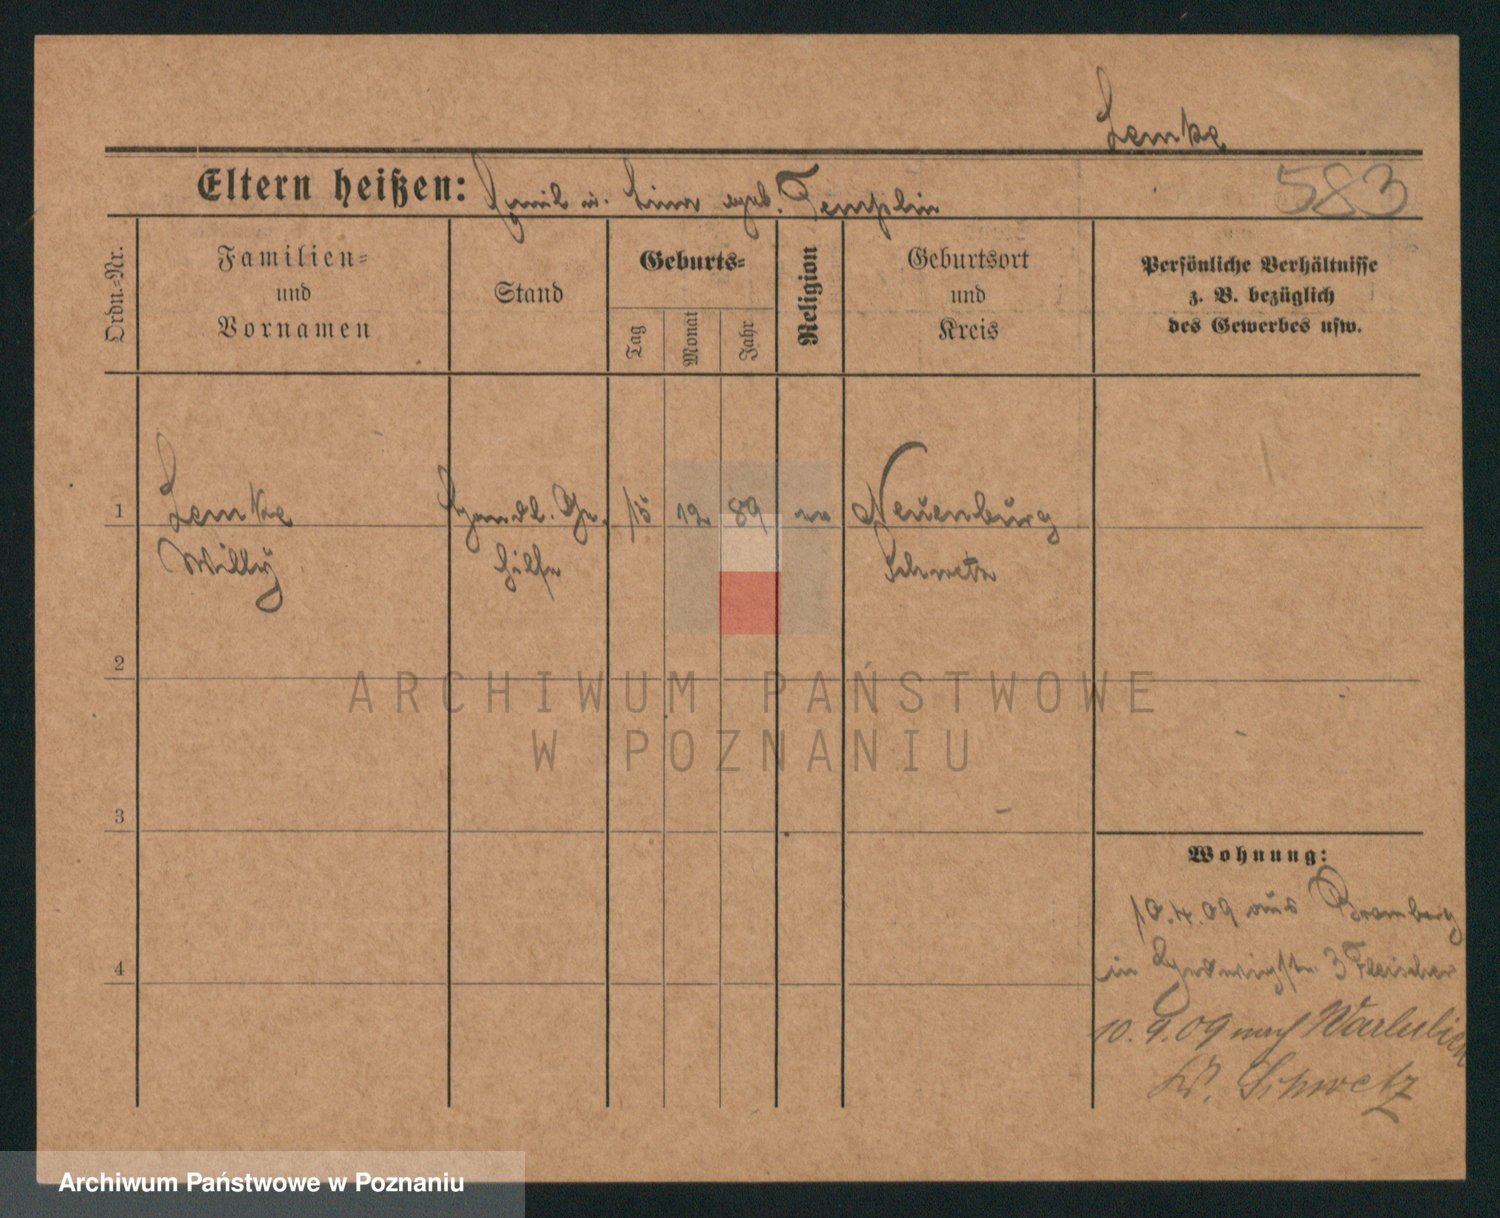 Lemke
Eltern heißen: Emil u. Lina geb. Templin
583
Ordn.-Nr.
Familien-
und
Vornamen
Stand
Geburts-
Tag
Monat
Jahr
Religion
Geburtsort
und
Kreis
Persönliche Verhältnisse
z. B. bezüglich
des Gewerbes usw.
1
Lemke
Willy
Handl. Ge-
hilfe
15
12
89
ev
Neuenburg
Schwetz
2
ARCHIWUM PAŃSTWOWE
W POZNANIU
3
Wohnung:
10.4.09 aus Bromberg
4
in Hedwigstr. 3 Fleischer
10.9.09 nach Warlubien
Kr. Schwetz
Archiwum Państwowe w Poznaniu